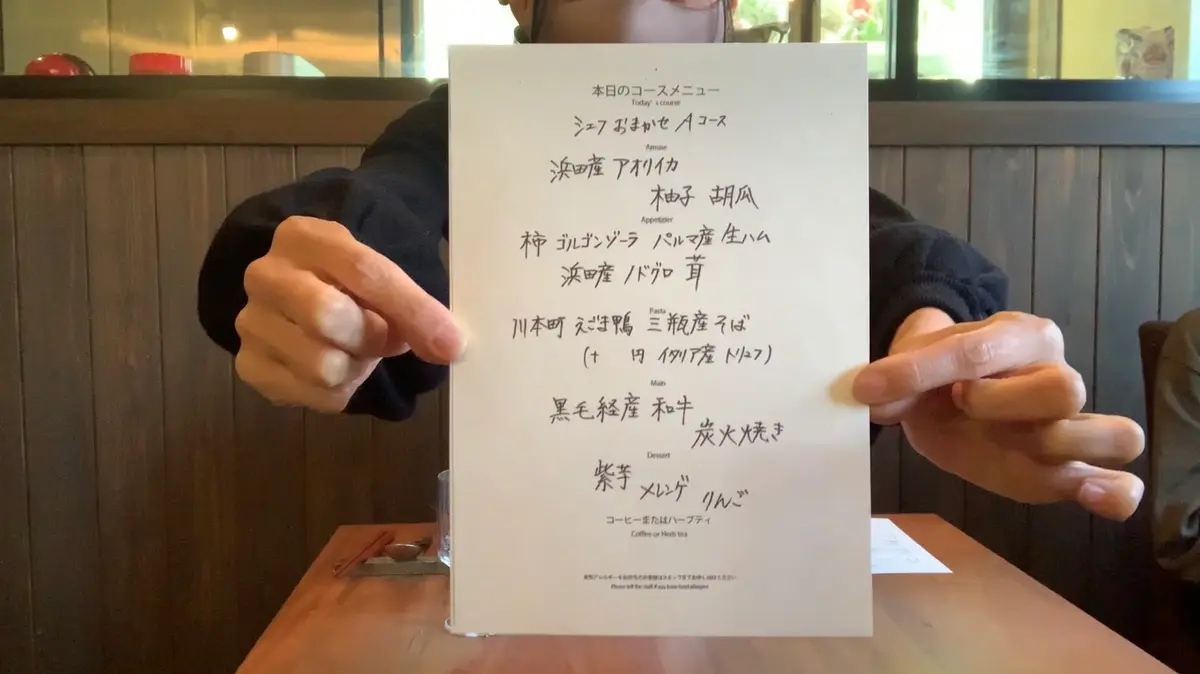 本日のコースメニュー
Today's course
シェフ おまかせ Aコース
Amuse
浜田産 アオリイカ
柚子 胡瓜
Appetizer
柿 ゴルゴンゾーラ パルマ産 生ハム
浜田産 ノドグロ 茸
Pasta
川本町 えごま鴨 三瓶産そば
(+ 円 イタリア産 トリュフ)
Main
黒毛経産 和牛
炭火焼き
Dessert
紫芋 メレンゲ りんご
コーヒーまたはハーブティ
Coffee or Herb tea
食物アレルギーをお持ちのお客様はスタッフまでお申し付けください
Please tell the staff if you have food allergies